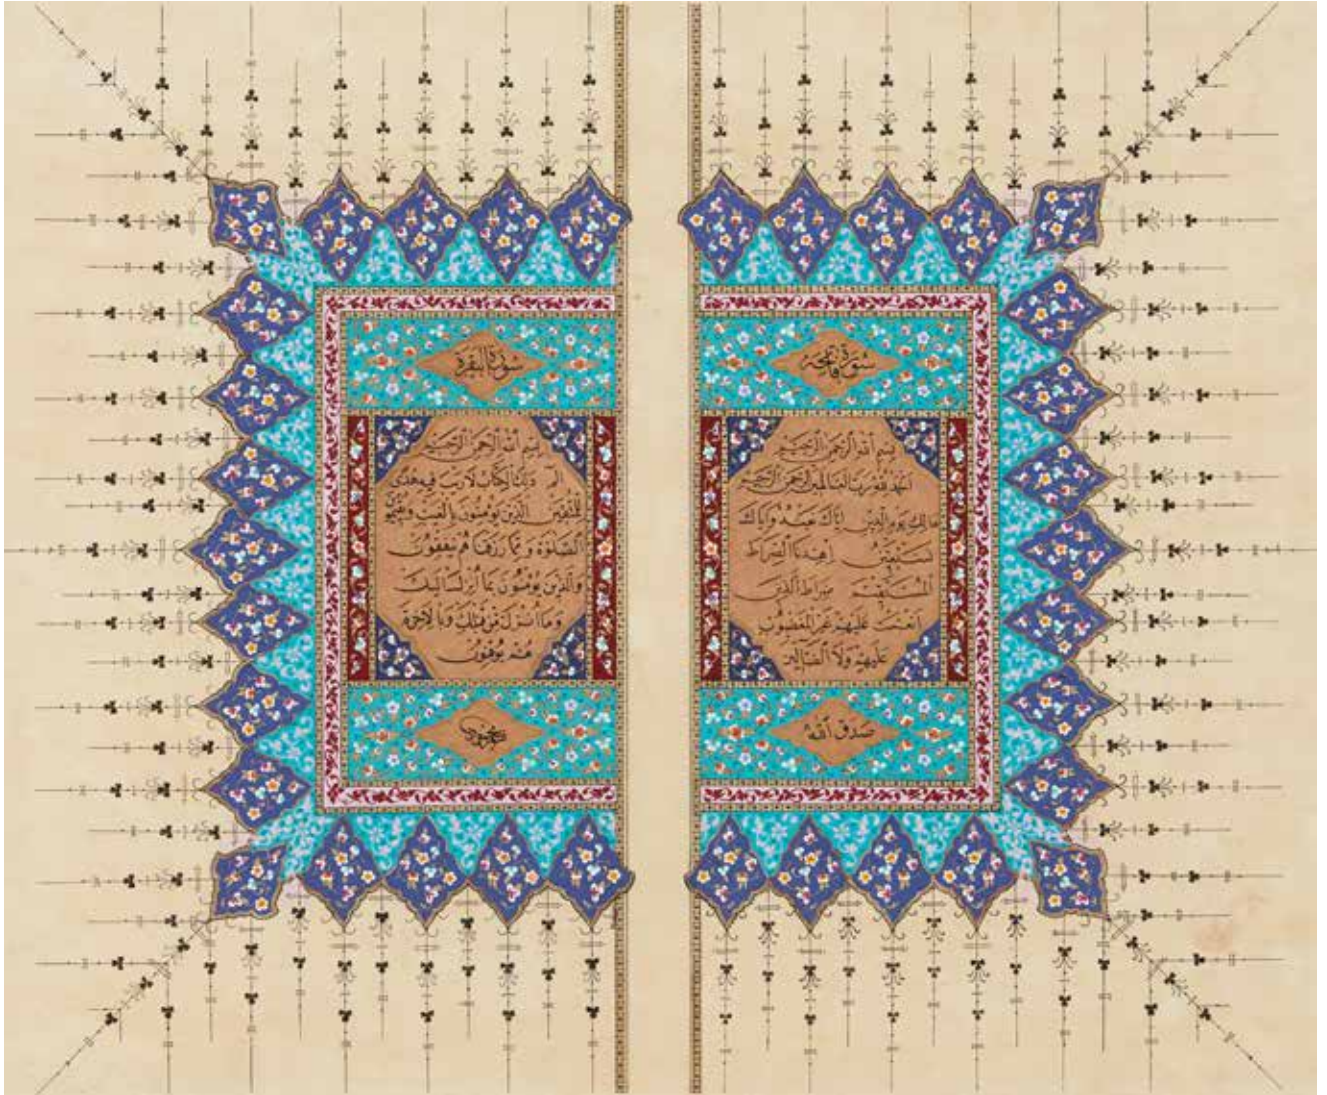 سورة فاتحه
بسم الله الرحمن الرحيم
الحمد لله رب العالمين الرحمن الرحيم
مالك يوم الدين اياك نعبد واياك
نستعين اهدنا الصراط
المستقيم صراط الذين
انعمت عليهم غير المغضوب
عليهم ولا الضالين
صدق الله
سورة البقرة
بسم الله الرحمن الرحيم
الم ذلك الكتاب لا ريب فيه هدى
للمتقين الذين يؤمنون بالغيب ويقيمون
الصلوة ومما رزقناهم ينفقون
والذين يؤمنون بما انزل اليك
وما انزل من قبلك وبالاخرة
هم يوقنون